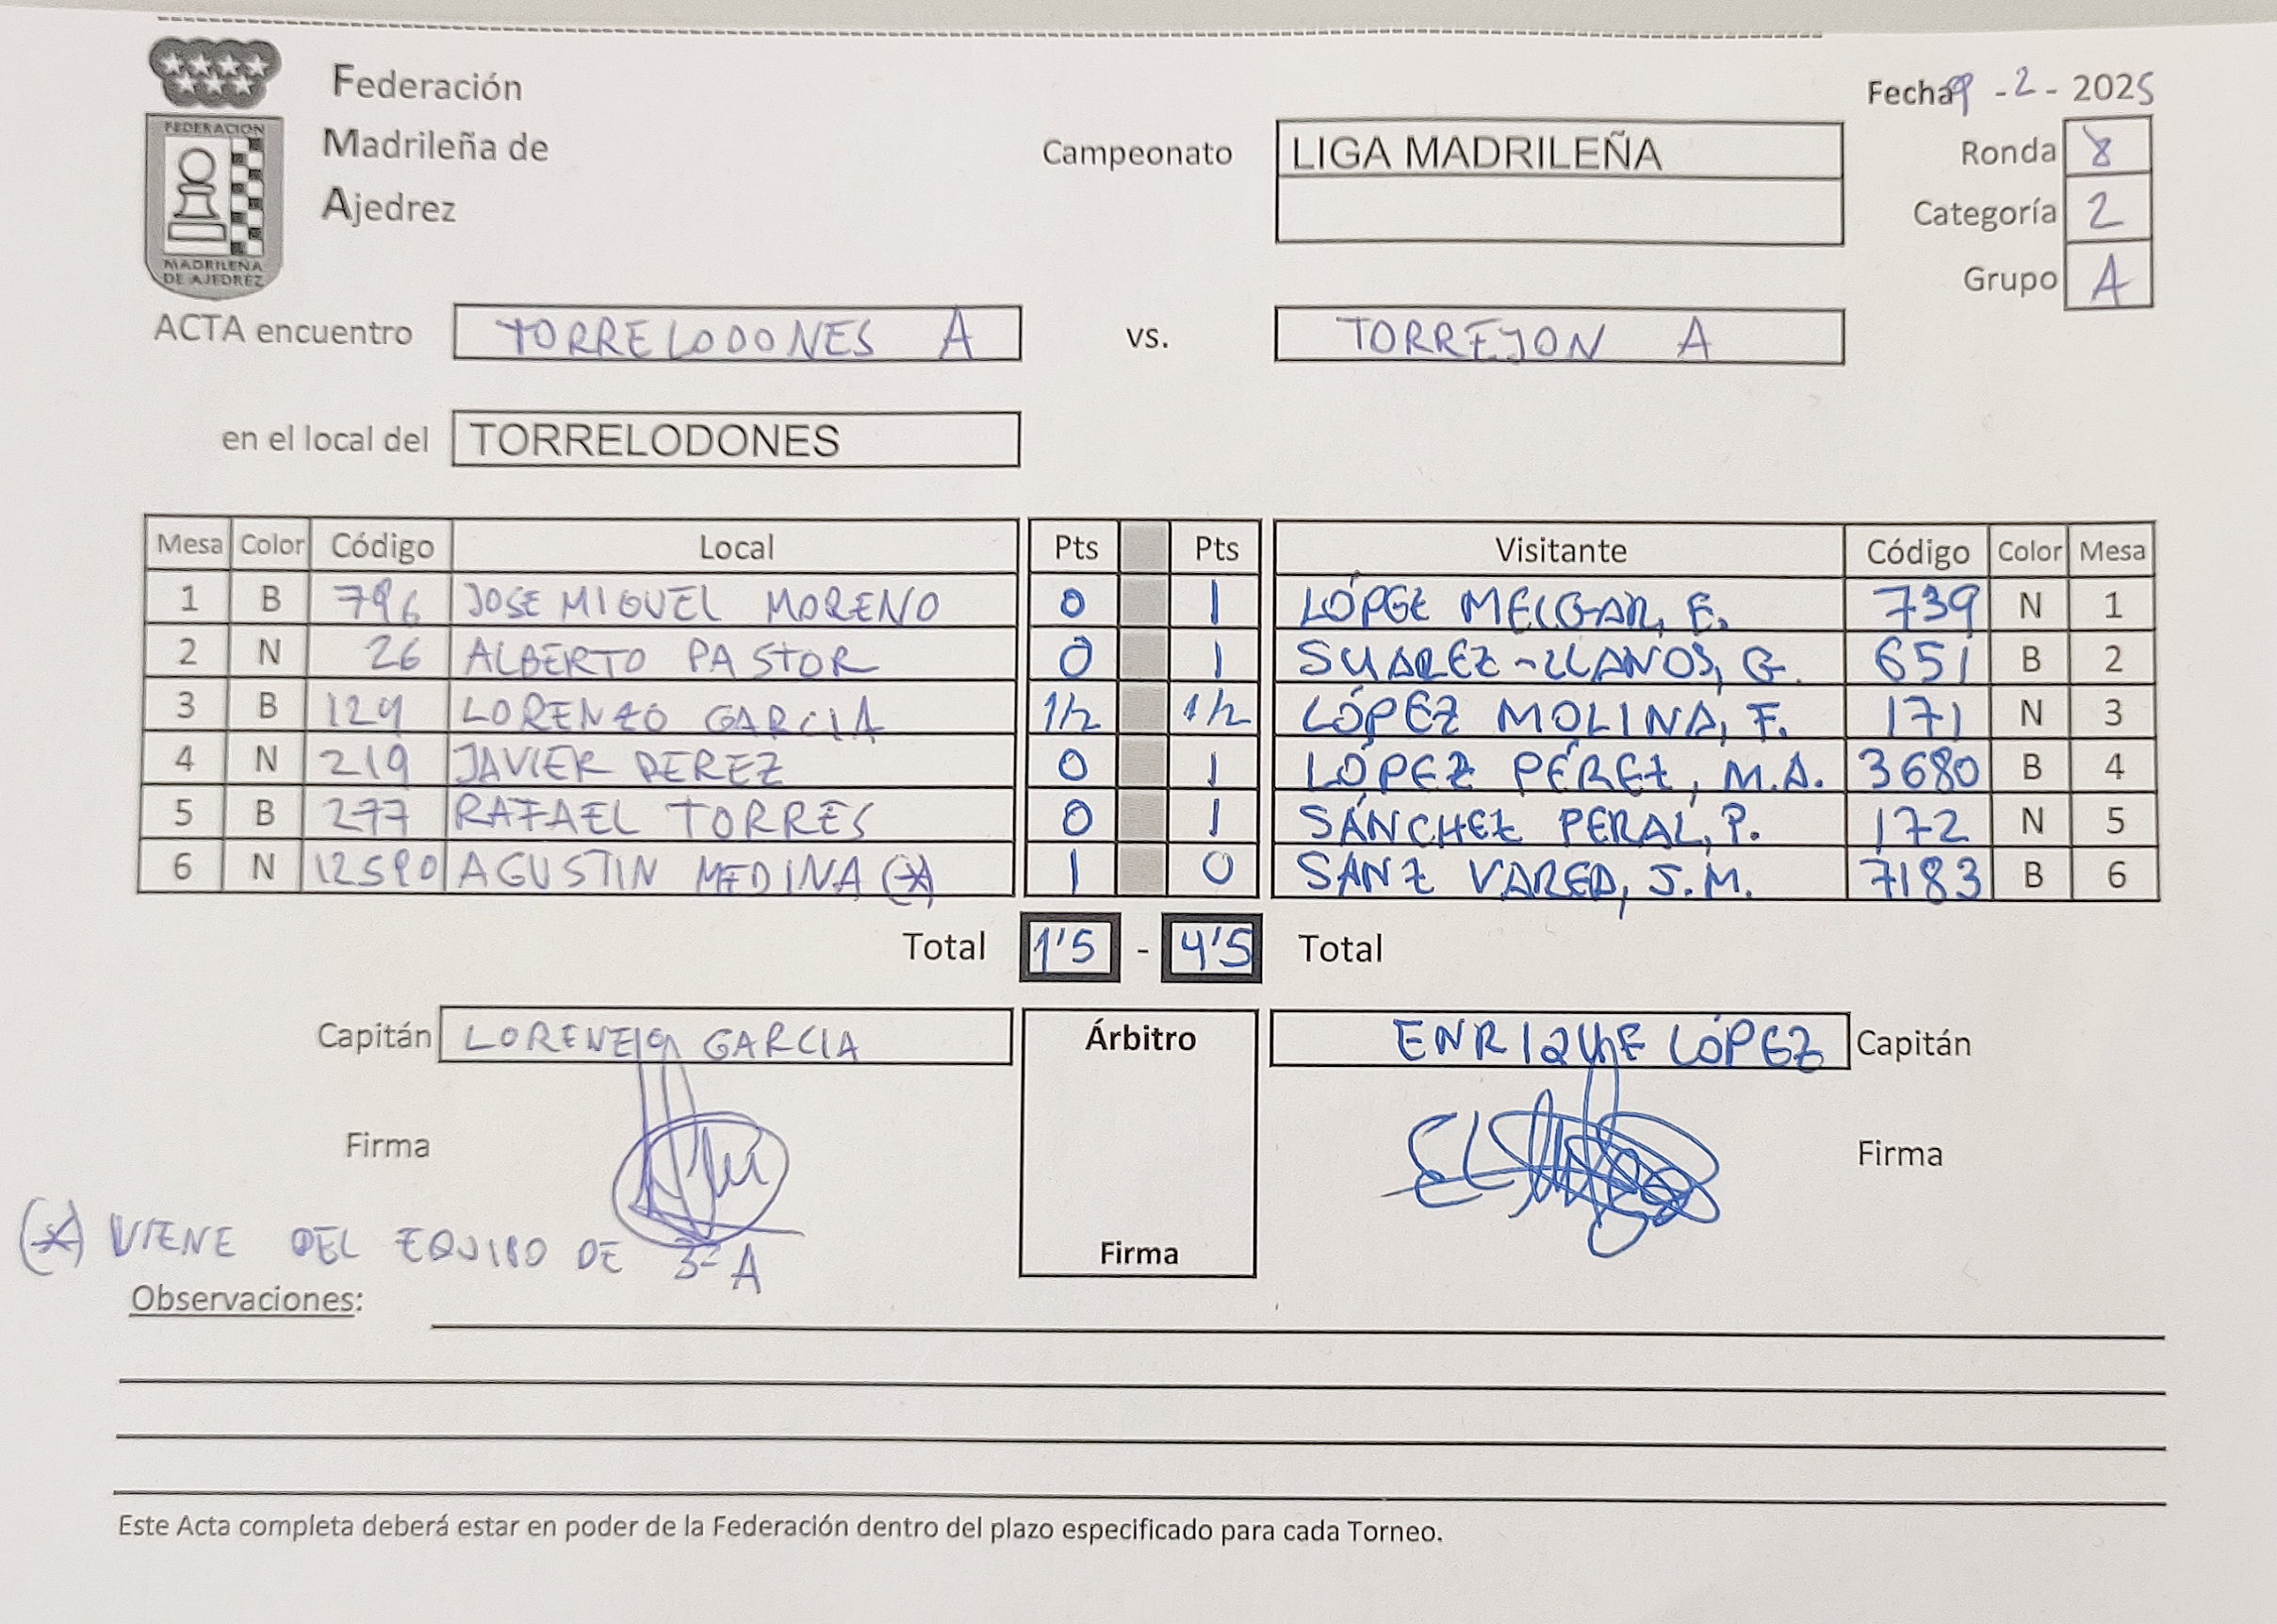 Federación
Madrileña de
Ajedrez
FEDERACION
MADRILEÑA
DE AJEDREZ
Fecha 9 - 2 - 2025
Campeonato LIGA MADRILEÑA
Ronda 8
Categoría 2
Grupo A
ACTA encuentro TORRELODONES A vs. TORREJON A
en el local del TORRELODONES
Mesa Color Código Local Pts Pts Visitante Código Color Mesa
1 B 796 JOSE MIGUEL MORENO 0 1 LÓPEZ MELGAR, E. 739 N 1
2 N 26 ALBERTO PASTOR 0 1 SUAREZ-LLANOS, G. 651 B 2
3 B 129 LORENZO GARCIA 1/2 1/2 LÓPEZ MOLINA, F. 171 N 3
4 N 219 JAVIER PEREZ 0 1 LÓPEZ PÉREZ, M.A. 3680 B 4
5 B 277 RAFAEL TORRES 0 1 SÁNCHEZ PERAL, P. 172 N 5
6 N 12590 AGUSTIN MEDINA (*) 1 0 SANZ VAREA, J.M. 7183 B 6
Total 1'5 - 4'5 Total
Capitán LORENZO GARCIA Árbitro ENRIQUE LÓPEZ Capitán
Firma Firma Firma
(*) VIENE DEL EQUIPO DE 3ª A
Observaciones:
Este Acta completa deberá estar en poder de la Federación dentro del plazo especificado para cada Torneo.